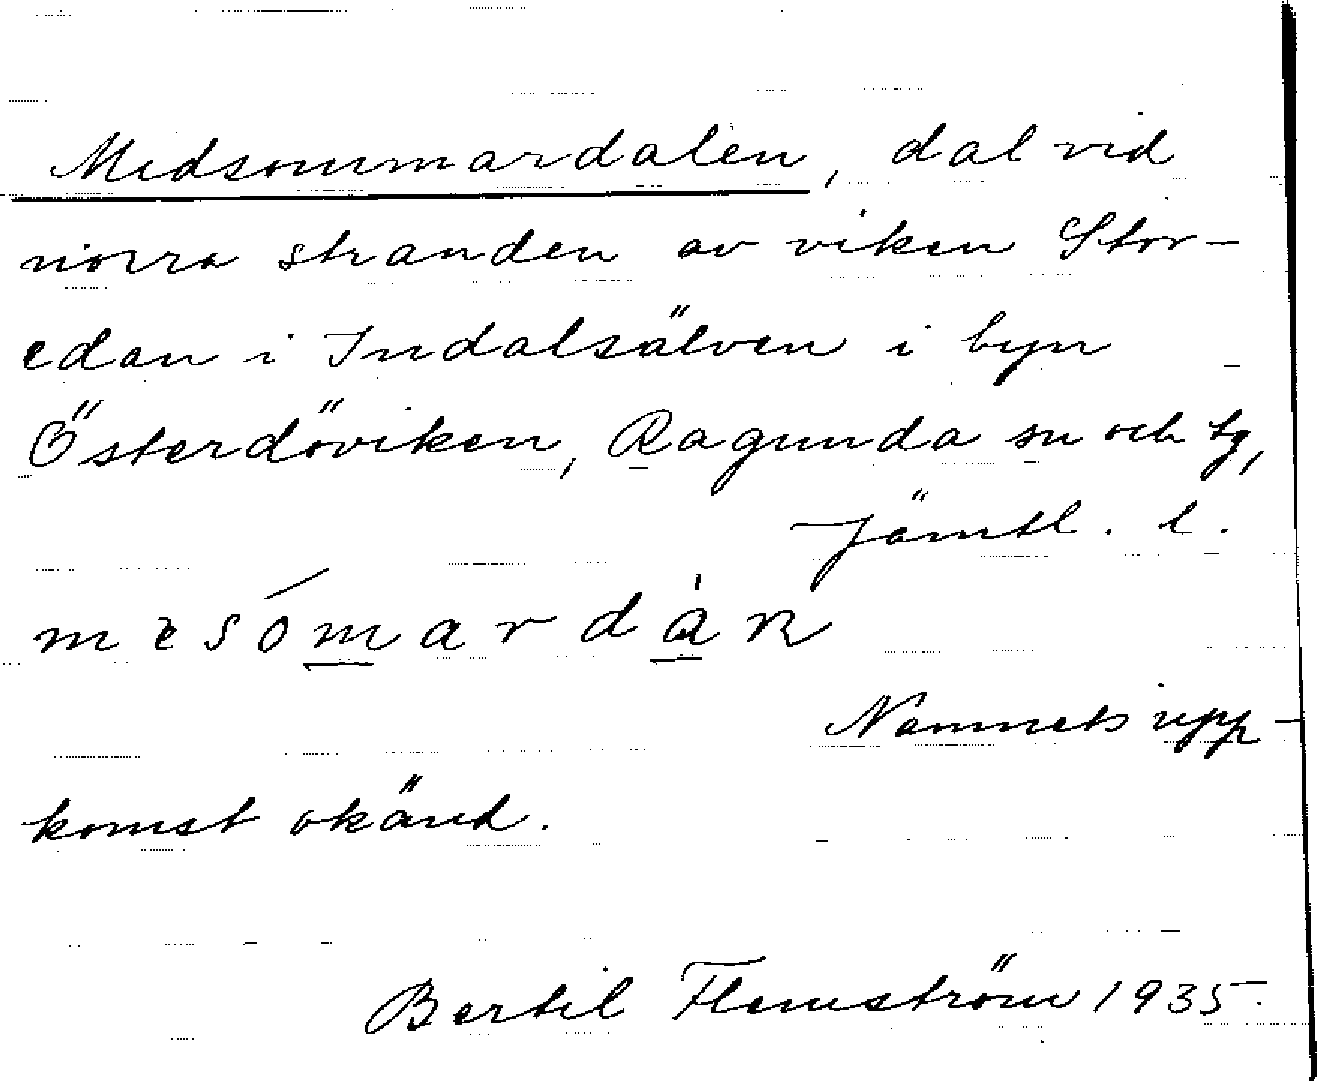 Midsommardalen, dal vid
norra stranden av viken Stor-
edan i Indalsälven i byn
Österdöviken, Ragunda sn och tg,
Jämtl. l.
Namnets upp-
komst okänd.
Bertil Flemström 1935.